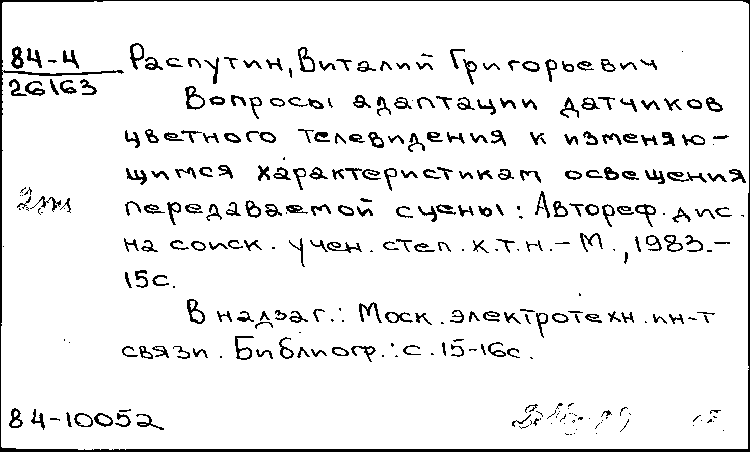 84-4 Распутин, Виталий Григорьевич
26163
Вопросы адаптации датчиков
цветного телевидения к изменяю-
щимся характеристикам освещения
передаваемой сцены: Автореф. дис.
на соиск. учен. степ. к.т.н. – М., 1983. –
15с.
В надзаг.: Моск. электротехн. ин-т
связи. Библиогр.: с. 15-16с.
84-10052